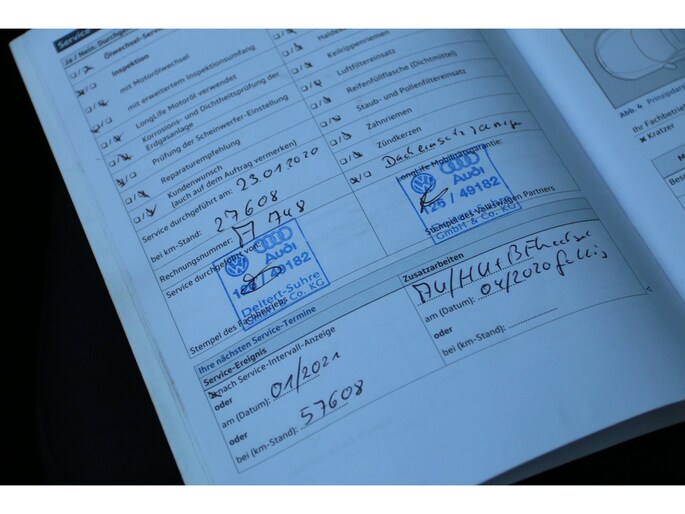 Service
Ja / Nein: Durchge
Ölwechsel-Serv
Inspektion
mit Motorölwechsel
mit erweitertem Inspektionsumfang
LongLife Motoröl verwendet
Korrosions- und Dichtheitsprüfung der
Erdgasanlage
Prüfung der Scheinwerfer-Einstellung
Reparaturempfehlung
Kundenwunsch
(auch auf dem Auftrag vermerken)
Service durchgeführt am: 23.01.2020
bei km-Stand: 27608
Rechnungsnummer: 748
Service durchgeführt von:
Audi
126 / 49182
Deitert-Suhre
GmbH & Co. KG
Stempel des Fachbetriebs
Haldex
Keilrippenriemen
Luftfiltereinsatz
Reifenfüllflasche (Dichtmittel)
Staub- und Pollenfiltereinsatz
Zahnriemen
Zündkerzen
LongLife Mobilitätsgarantie:
Audi
126 / 49182
GmbH & Co. KG
Stempel des Volkswagen Partners
Ihre nächsten Service-Termine
Service-Ereignis
nach Service-Intervall-Anzeige
oder
am (Datum): 01/2021
oder
bei (km-Stand): 57608
Zusatzarbeiten
AU/HU+
am (Datum): 04/2020 fällig
oder
bei (km-Stand):
Abb. 4 Prinzipdar
Ihr Fachbetrie
Kratzer